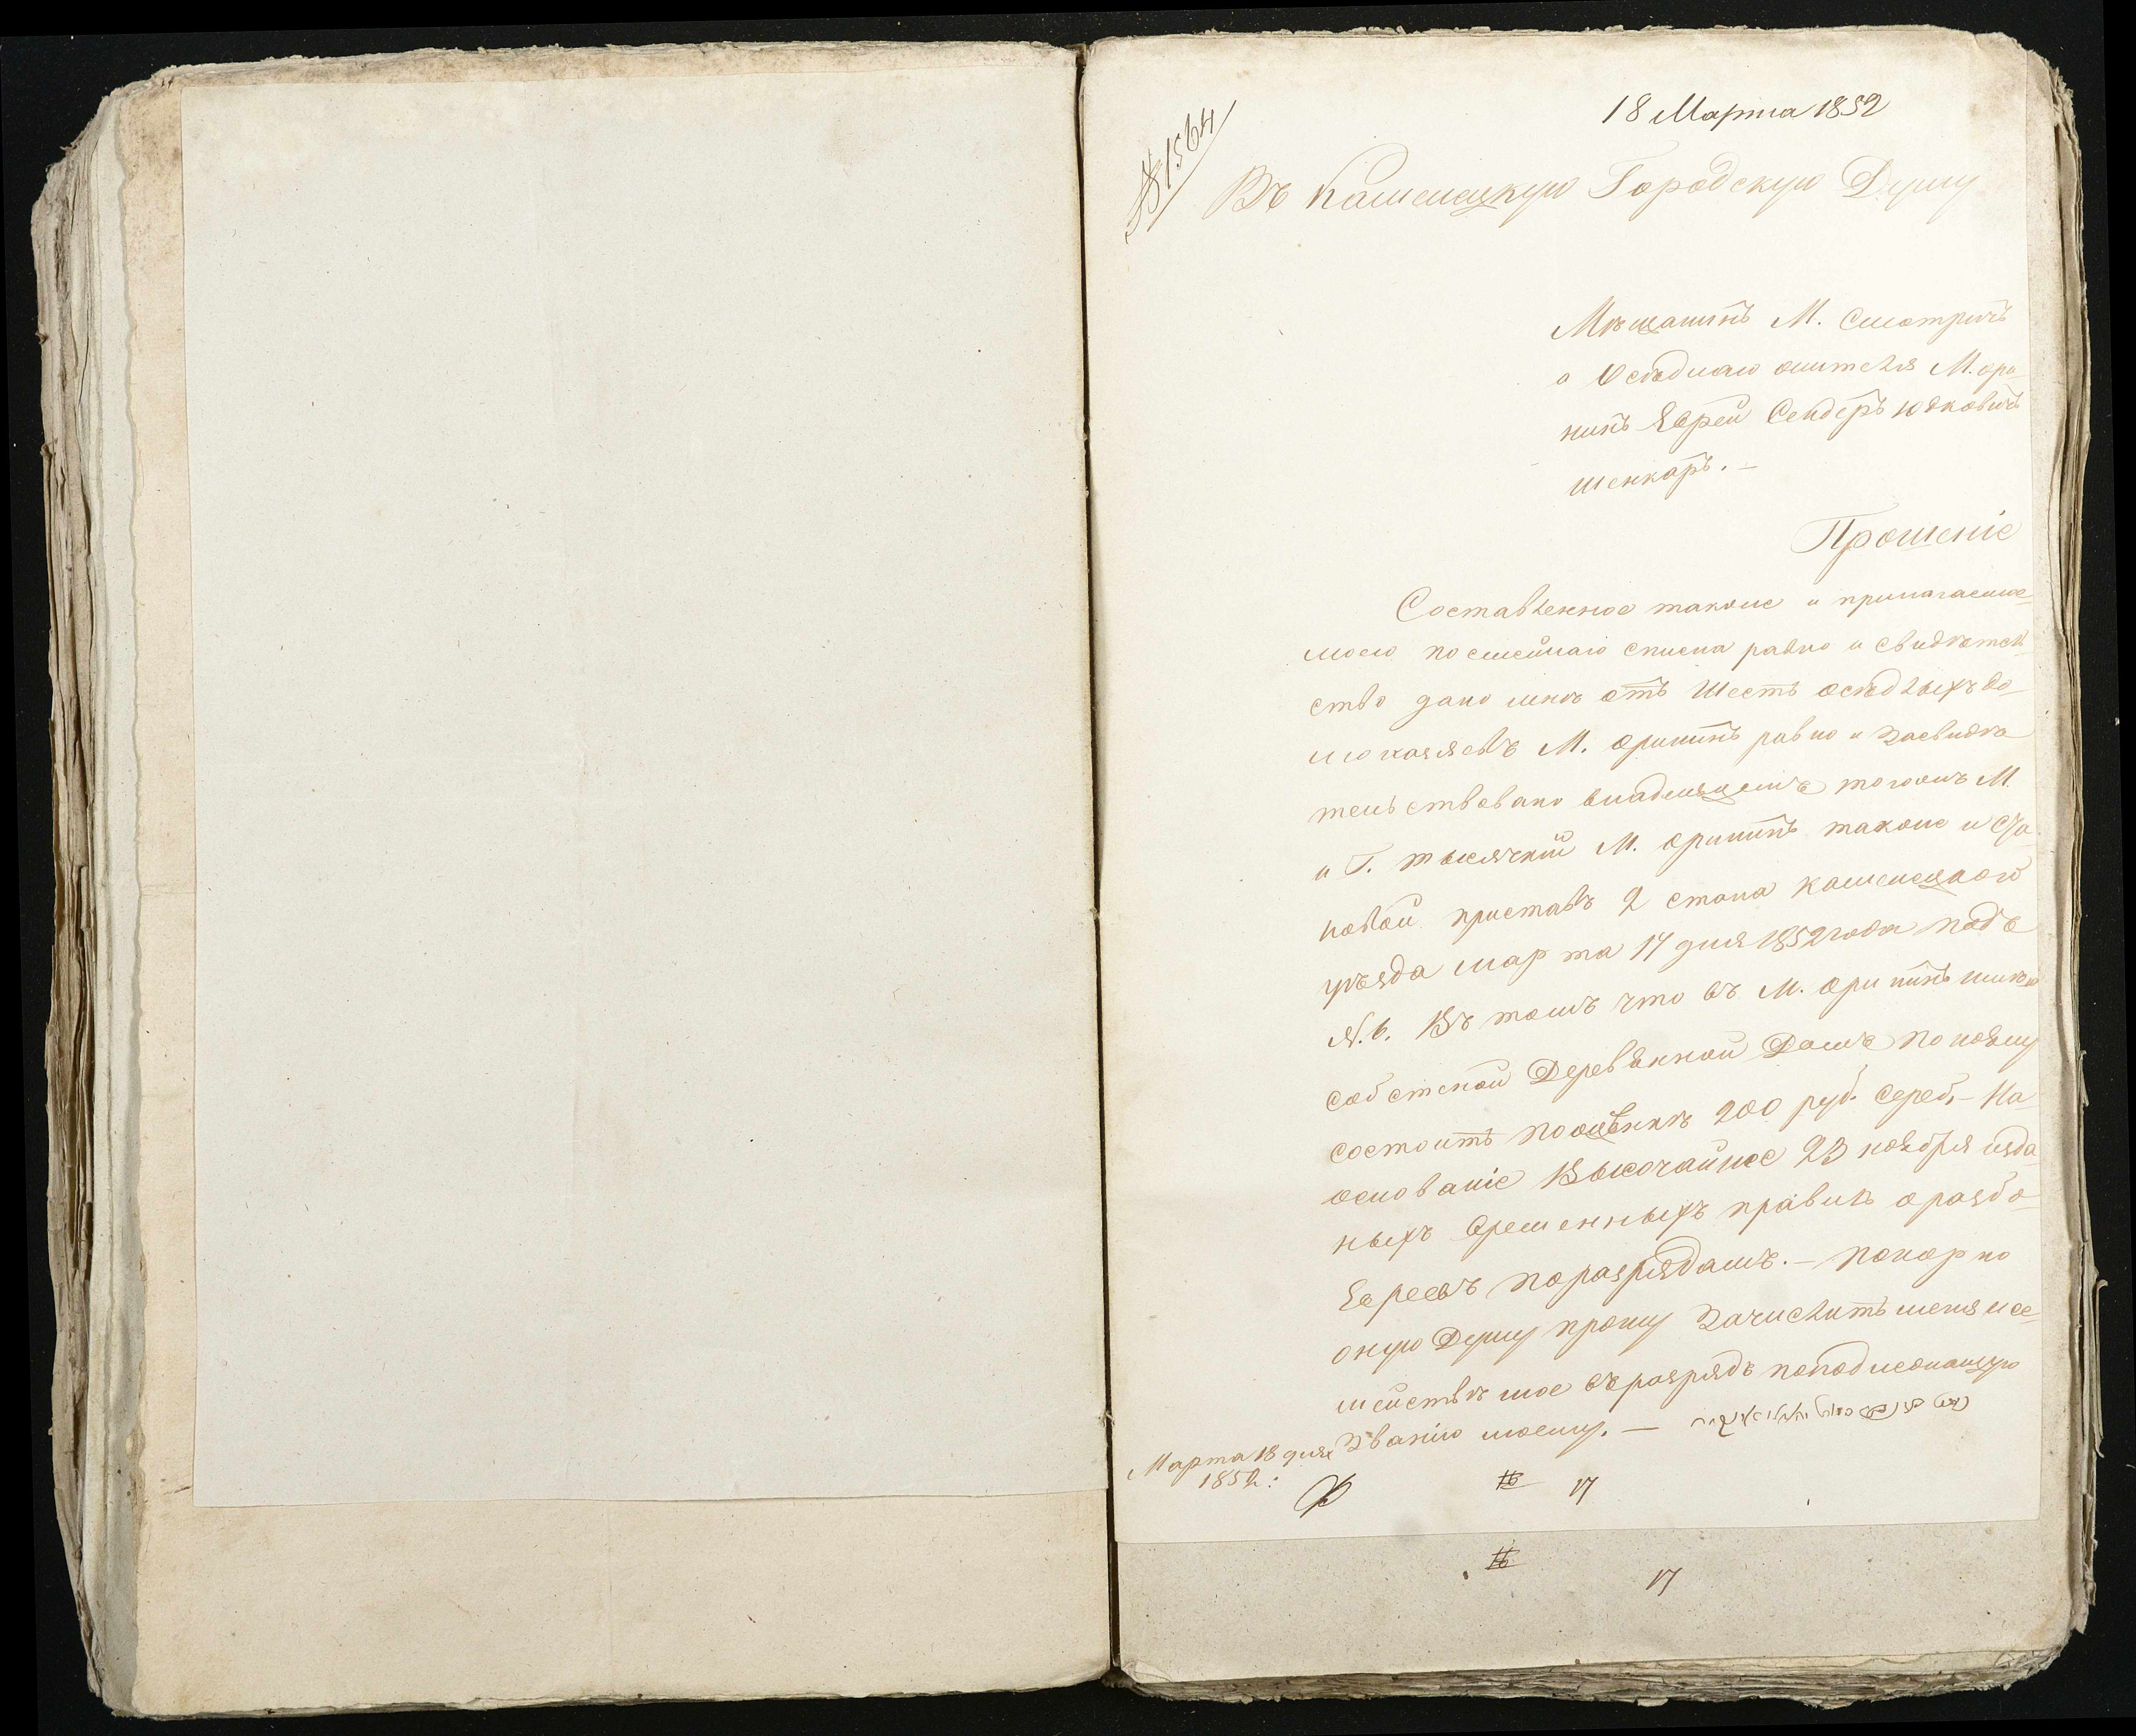 18 Марта 1852
№ 1564
Въ Каменецкую Городскую Думу
Мѣщанинъ М. Смотричъ
а Осѣдлаго жителя М. Ори
нинъ Еврей Сендеръ Юдковичъ
шенкаръ. —
Прошеніе
Составленное также и прилагаемое
моего посемейнаго списка равно и свидѣтель
ство дано мнѣ отъ шесть осѣдлыхъ до
мохозяевъ М. Орининъ равно и засвидѣ
тельствовано владѣльцемъ тогожъ М.
и Г. тысячкій М. Орининъ также и Ста
новой приставъ 2 стана каменецкого
уѣзда марта 17 дня 1852 года подъ
N. 6. Въ томъ что въ М. Орининъ имѣю
собстеной Деревянной Домъ по коему
состоитъ пооцѣнкѣ 200 руб. сереб, — На
основаніе Высочайшее 23 ноября изда
ныхъ временныхъ правилъ о разбо
Евреевъ поразрядамъ. — покорно
оную Думу прошу зачислить меня и се
мейству мое въ разрядъ поподлежащую
званію моему. —
Марта 18 дня
1852:
16 17
16
17